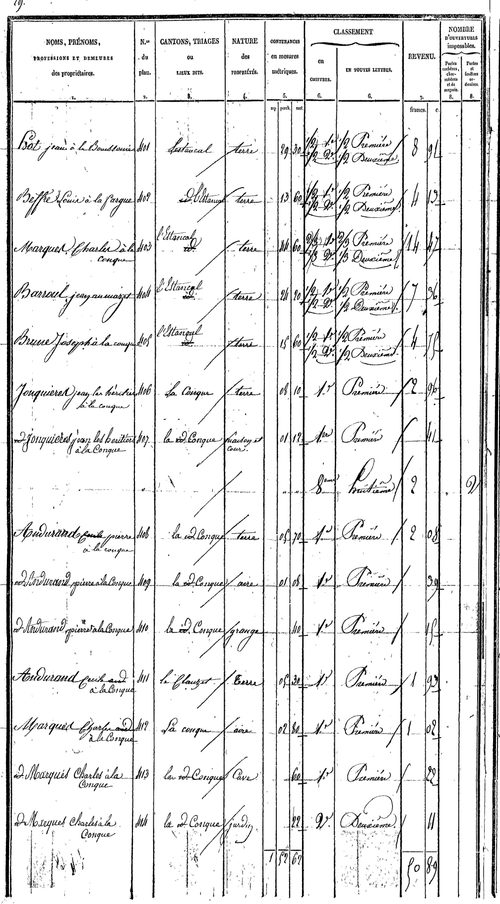 19.
NOMS, PRÉNOMS,
PROFESSIONS ET DEMEURES
des propriétaires.
N.os
du
plan.
CANTONS, TRIAGES
ou
LIEUX DITS.
NATURE
des
propriétés.
CONTENANCES
en mesures
métriques.
CLASSEMENT
en
CHIFFRES.
EN TOUTES LETTRES.
REVENU.
NOMBRE
D'OUVERTURES
imposables.
1. 2. 3. 4. 5. 6. 6. 7. 8. 8.
francs. c.
jean à la 401 Lestancal terre 29 30 1/2 1re 1/2 2e 1/2 Première 1/2 Deuxième 8 91
à la 402 d L'Estancal terre 13 60 1/2 1re 1/2 2e 1/2 Première 1/2 Deuxième 4 13
Marques Charles à la conque 403 l'Estancal terre 44 60 2/3 Première 1/3 Deuxième 14 47
Barraul jean 404 l'Estancal terre 24 20 1/2 1re 1/2 2e 1/2 Première 1/2 Deuxième 7 36
Brune Joseph à la conque 405 l'Estancal terre 15 60 1/2 1re 1/2 2e 1/2 Première 1/2 Deuxième 4 75
Jonquieres jean les héritiers à la conque 406 La Conque terre 08 10 1re Première 2 96
d Jonquieres jean les héritiers à la Conque 407 la d Conque maison et cour 01 12 1re Première 41
8eme huitième 2 2
Andurand pierre à la conque 408 la d Conque terre 05 70 1re Première 2 08
d Andurand pierre à la Conque 409 la d Conque aire 01 08 1re Première 39
d Andurand pierre à la Conque 410 la d Conque grange 40 1re Première 15
Andurand à la Conque 411 le Clauzet Terre 05 30 1re Première 1 93
Marques Charles à la Conque 412 La conque aire 02 80 1re Première 1 02
d Marques Charles à la Conque 413 la d Conque Cave 60 1re Première 22
d Marques Charles à la Conque 414 la d Conque jardin 22 2e Deuxième 11
1 52 62 50 89